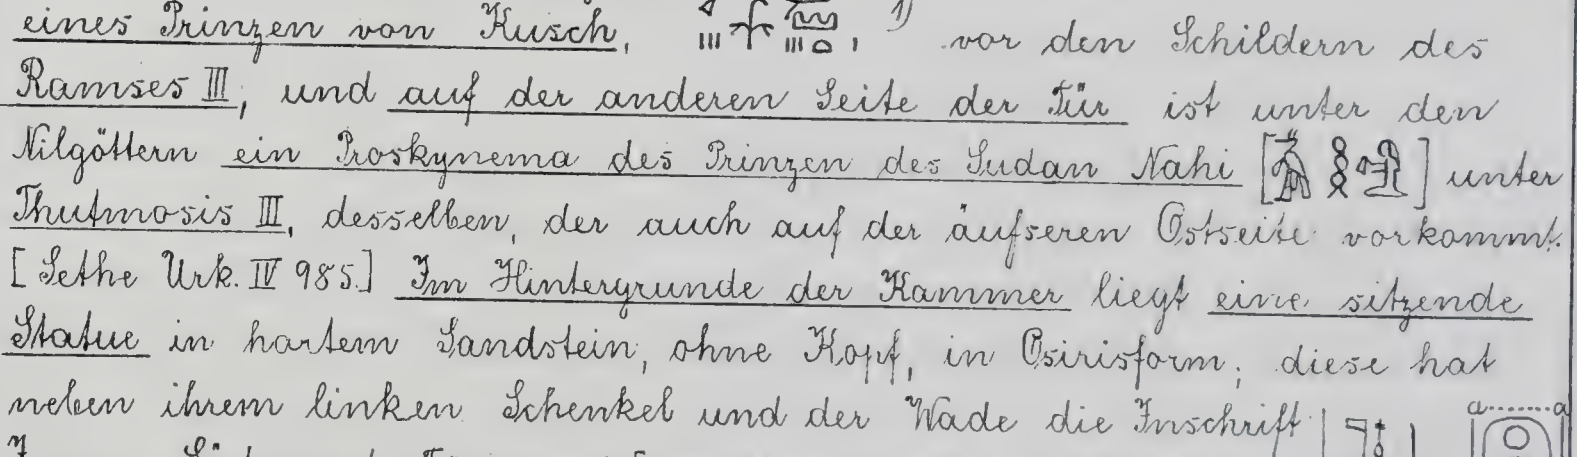 eines Prinzen von Kusch, 1) vor den Schildern des
Ramses III, und auf der anderen Seite der Tür ist unter den
Nilgöttern ein Proskynema des Prinzen des Sudan Nahi [ ] unter
Thutmosis III, desselben, der auch auf der äufseren Ostseite vorkommt.
[Sethe Urk. IV 985.] Im Hintergrunde der Kammer liegt eine sitzende
Statue in hartem Sandstein, ohne Kopf, in Osirisform; diese hat
neben ihrem linken Schenkel und der Wade die Inschrift a a